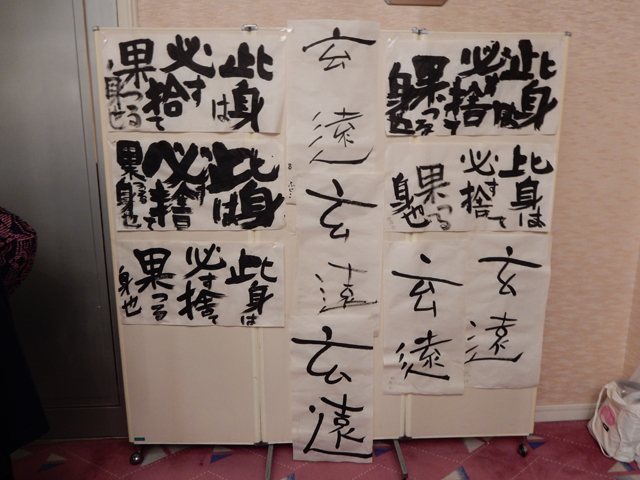 此身は
必ず捨て
果つる
身也
此身は
必ず捨て
果つる
身也
此身は
必ず捨て
果つる
身也
玄遠
玄遠
玄遠
此身は
必ず捨て
果つる
身也
此身は
必ず捨て
果つる
身也
玄遠
玄遠